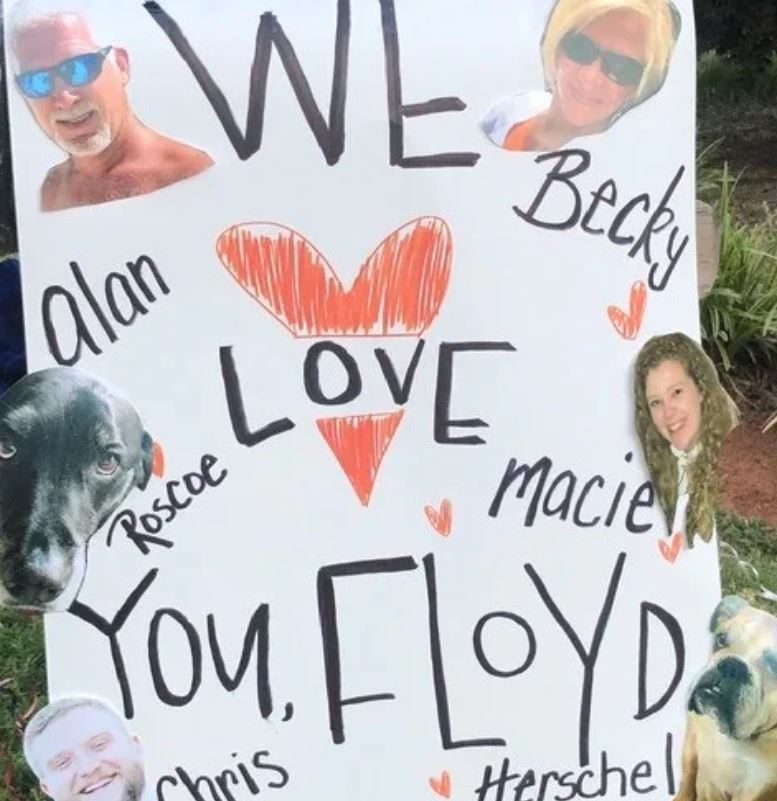 WE
Becky
alan
LOVE
Roscoe
Macie
YOU, FLOYD
Chris
Herschel